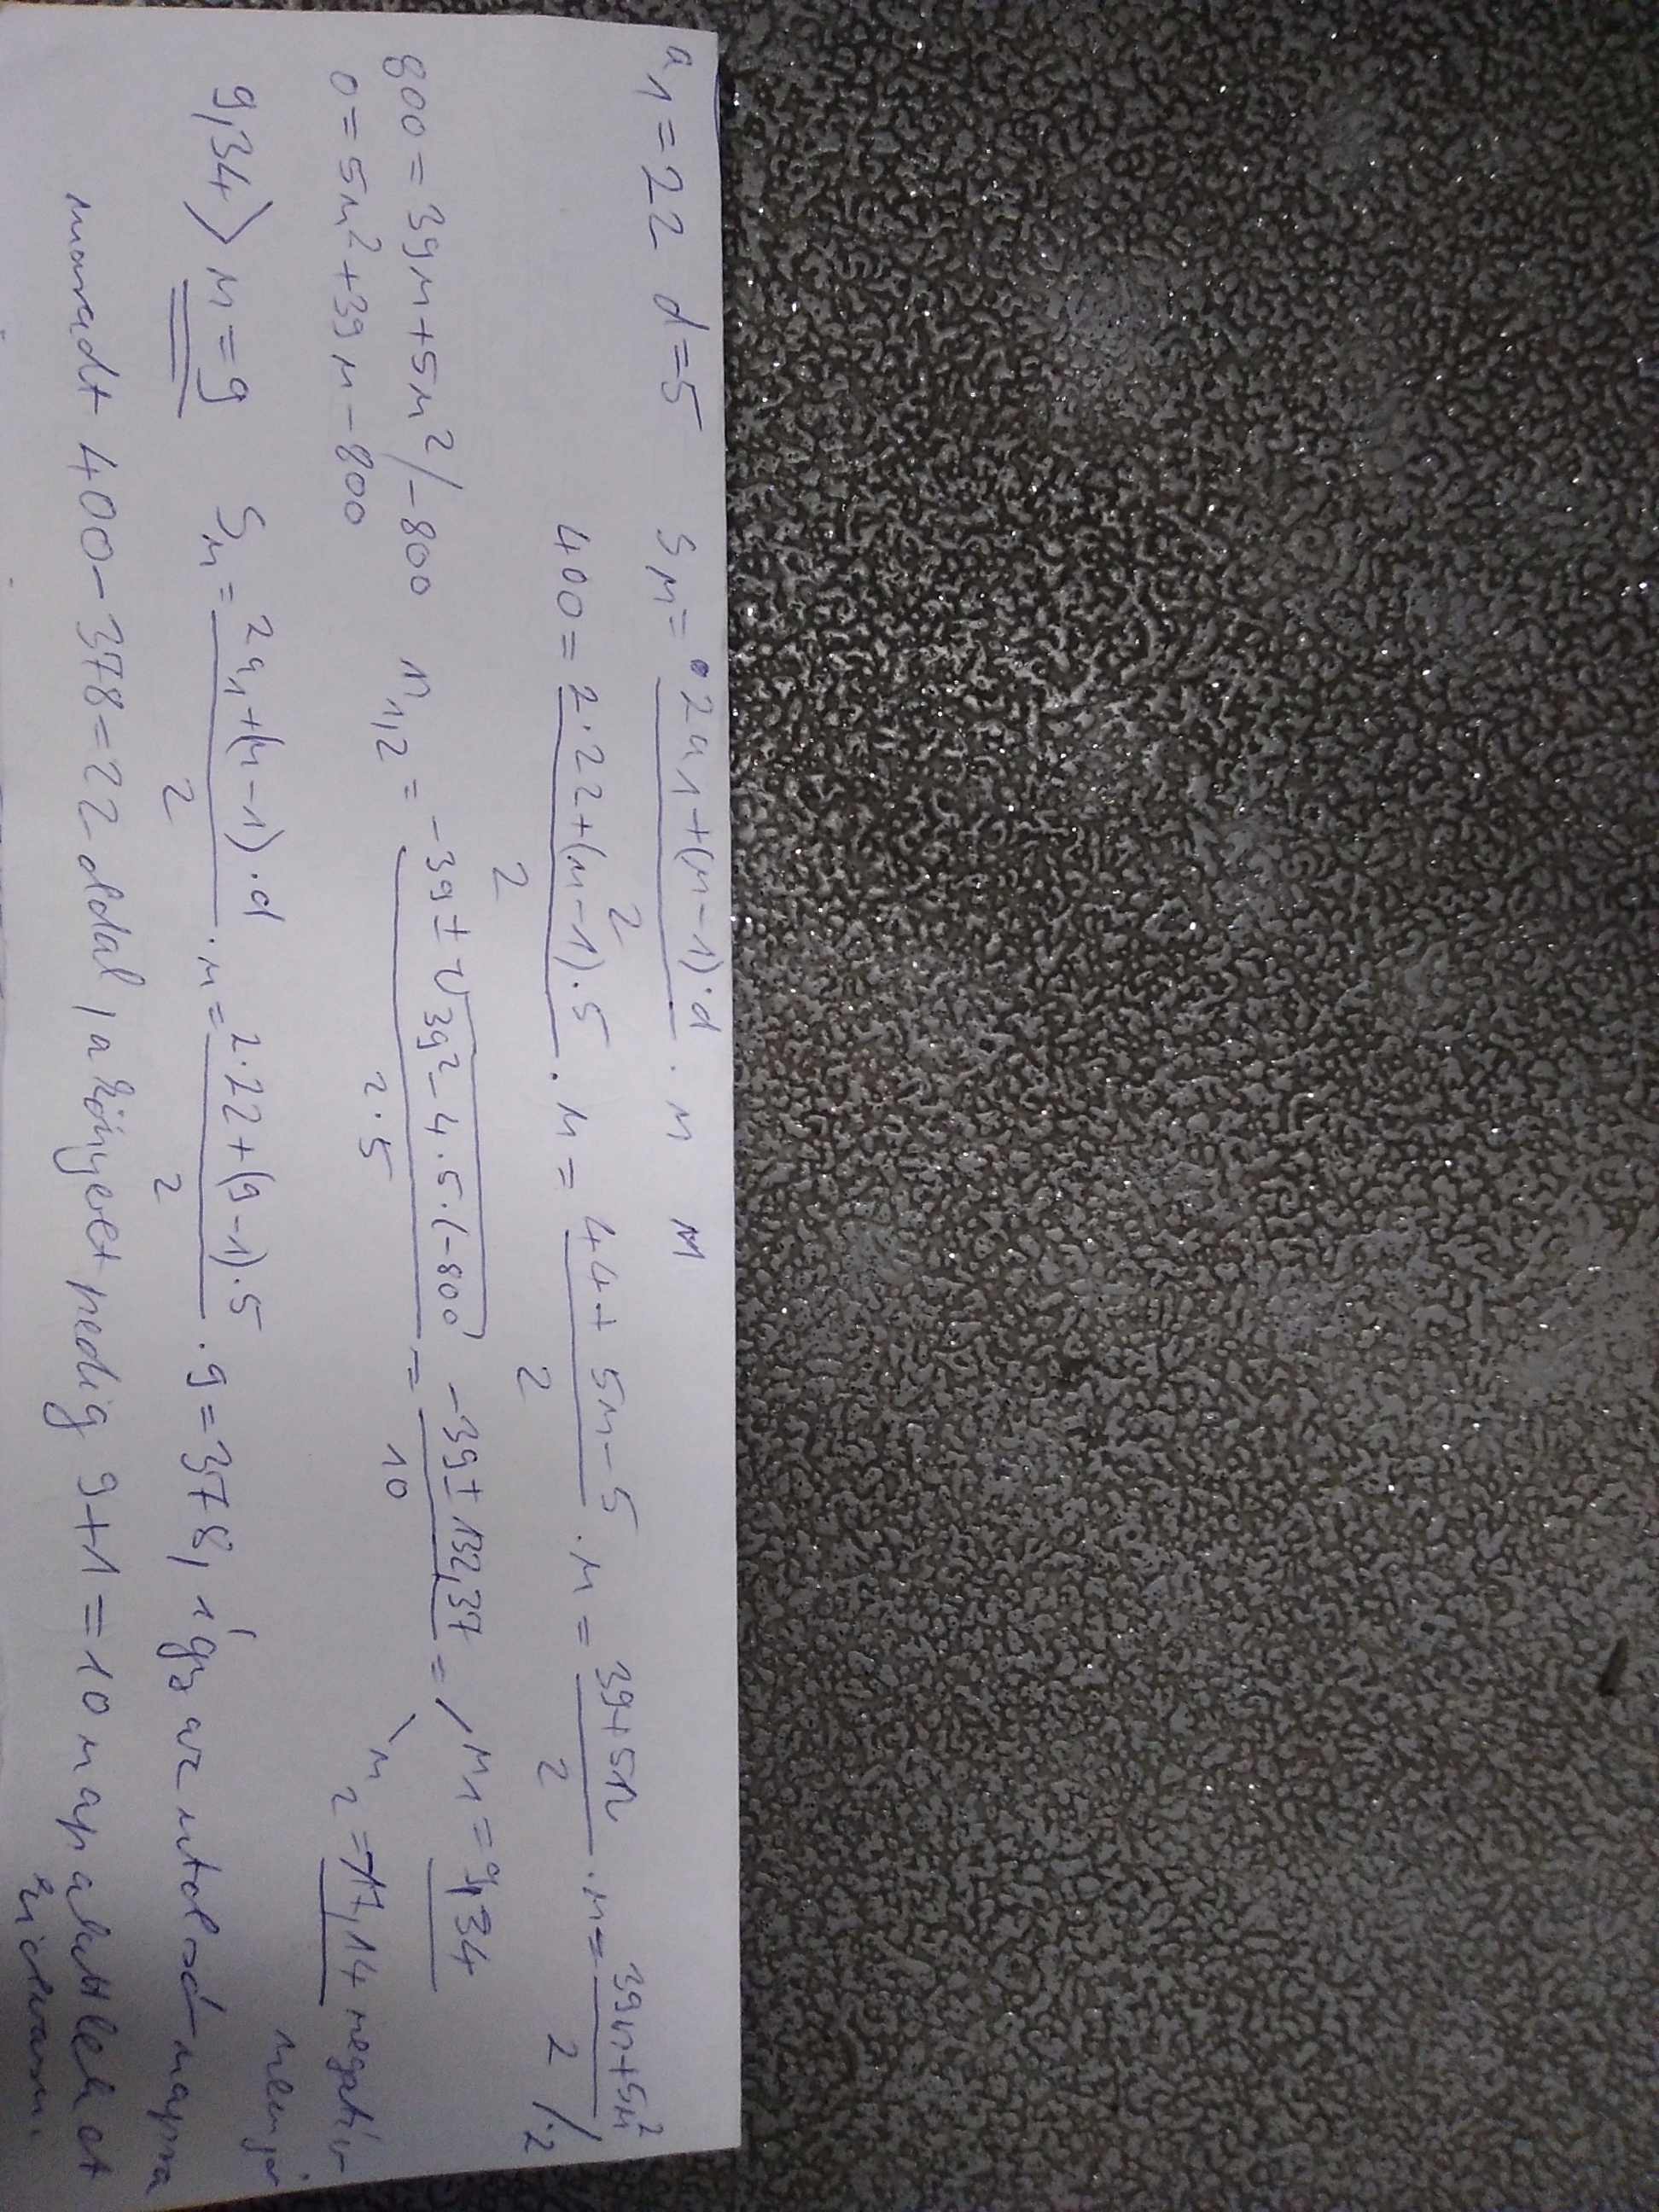 a1=22 d=5 Sn= 2a1+(n-1)·d / 2 · n n
400= 2·22+(n-1)·5 / 2 · n = 44+5n-5 / 2 · n = 39+5n / 2 · n = 39n+5n² / 2 /·2
800=39n+5n² /-800 n1,2 = -39±√39²-4·5·(-800) / 2·5 = -39±132,37 / 10 = n1=9,34
0=5n²+39n-800 n2=-17,14 negatív
nem jó
9,34> n=9 Sn= 2a1+(n-1)·d / 2 · n = 2·22+(9-1)·5 / 2 · 9=378, így az utolsó napra
maradt 400-378=22 oldal, a könyvet pedig 9+1=10 nap alatt lehet
kiolvasni.